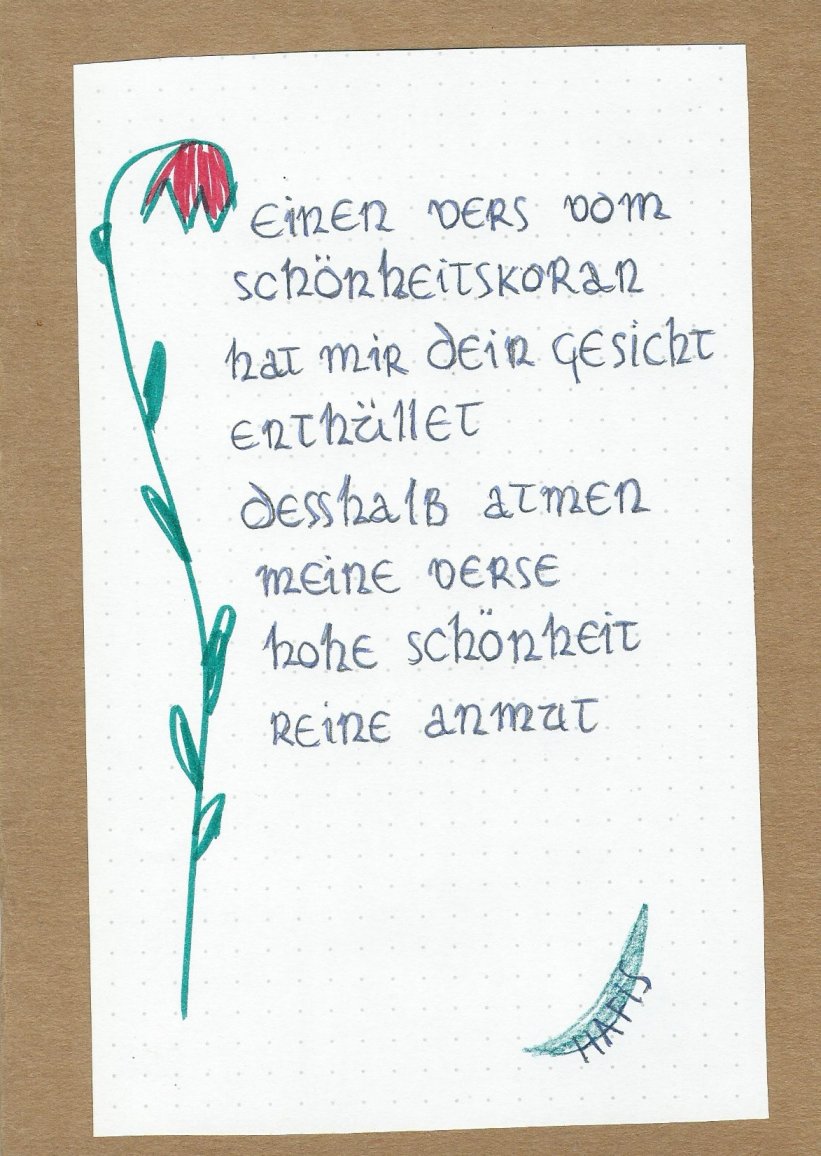 einen vers vom
schönheitskoran
hat mir dein gesicht
enthüllet
desshalb atmen
meine verse
hohe schönheit
reine anmut
HAFIS